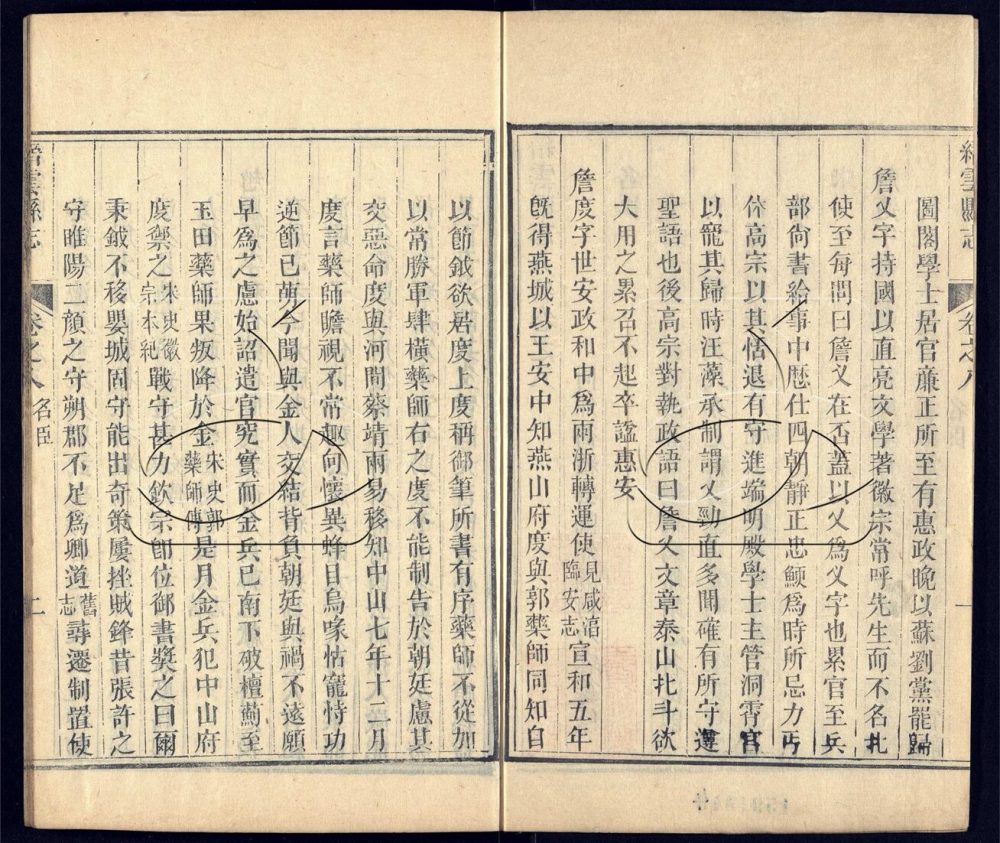 縉雲縣志
卷之八
圖閣學士居官廉正所至有惠政晚以蘇劉黨罷歸
詹乂字持國以直亮文學著徽宗常呼先生而不名北
使至每問曰詹乂在否蓋以乂爲父字也累官至兵
部尚書給事中歷仕四朝靜正忠鯁爲時所忌力丐
休高宗以其恬退有守進端明殿學士主管洞霄宮
以寵其歸時汪藻承制謂乂勁直多聞確有所守遵
聖語也後高宗對執政語曰詹乂文章泰山北斗欲
大用之累召不起卒諡惠安
詹度字世安政和中爲兩浙轉運使見咸淳臨安志宣和五年
既得燕城以王安中知燕山府度與郭藥師同知自
以節鉞欲居度上度稱御筆所書有序藥師不從加
以常勝軍肆橫藥師右之度不能制告於朝廷慮其
交惡命度與河間蔡靖兩易移知中山七年十二月
度言藥師瞻視不常趣向懷異蜂目烏喙怙寵恃功
逆節已萌今聞與金人交結背負朝廷與禍不遠願
早爲之慮始詔遣官究實而金兵已南下破檀薊至
玉田藥師果叛降於金宋史郭藥師傳是月金兵犯中山府
度禦之宋史徽宗本紀戰守甚力欽宗卽位御書奬之曰爾
秉鉞不移嬰城固守能出奇策屢挫賊鋒昔張許之
守睢陽二顏之守朔郡不足爲卿道舊志尋遷制置使
縉雲縣志
卷之八 名臣